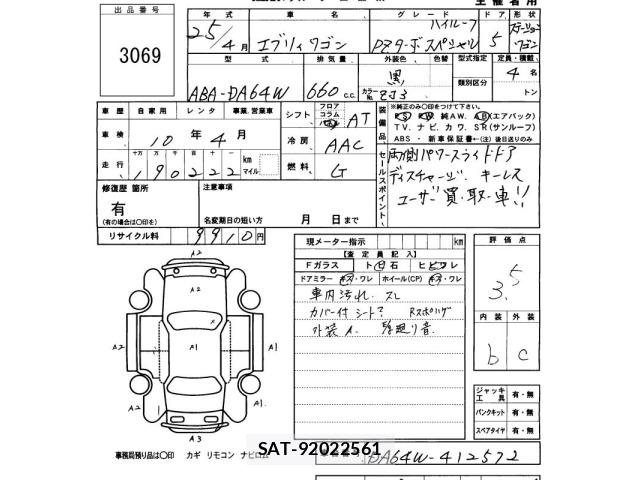 主 催 者 用
出 品 番 号
3069
年 式 車 名 グ レ ー ド ド ア 形 状
25/4月 エブリィワゴン ハイルーフ PZターボスペシャル 5 ステーションワゴン
型 式 排 気 量 外装色 色替 型式指定 定員・積載
ABA-DA64W 660 c.c. 黒 カラーNo. ZJ3 類別区分 4 名
トン
車 歴 自 家 用 レ ン タ 事業.営業車
シフト フロア コラム AT
車 検 10 年 4 月
冷 房 AAC
走 行 十万 万 千 百 十 190222 km マイル
燃 料 G
装備品 ※純正のみ○印をつけて下さい。
PS PW 純AW. AB(エアバック)
TV. ナビ. カワ. SR(サンルーフ)
ABS・新車保証書←(注)後日送りのみ
セールスポイント、
両側パワースライドドア
ディスチャージ. キーレス
ユーザー買.取.車!!
修復歴 箇所 注意事項
有
(有の場合は○印を) 名変期日の短い方 月 日 まで
リサイクル料 9910円
現メーター指示 km
【査 定 員 記 入】
Fガラス ト 石 ヒビワレ
ドアミラー キズ・ワレ ホイール(CP) キズ・ワレ
車内汚れ. スレ
カバー付シート?
外装A.
評 価 点
3.5
内 装 外 装
b c
ジャッキ 工具 有・無
パンクキット 有・無
スペアタイヤ 有・無
A2
A2
A2 A1 A1
A2 A1.
A3
事務局預り品は○印 カギ リモコン ナビロム
SAT-92022561
DA64W-412572